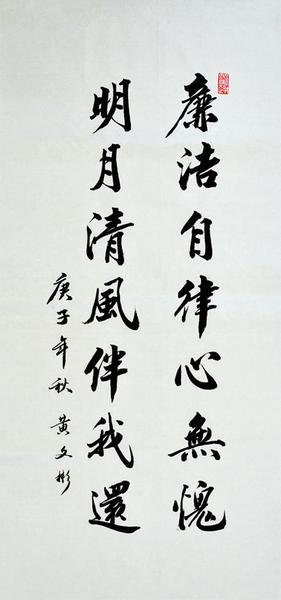 廉洁自律心無愧
明月清風伴我還
庚子年秋黄文彬